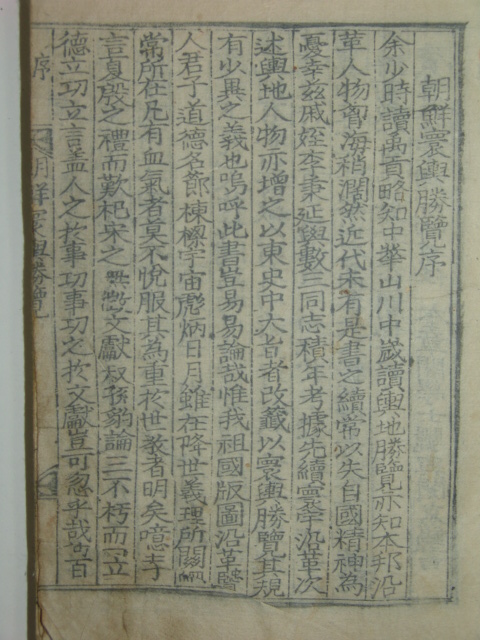 朝鮮寰輿勝覽序
余少時讀禹貢略知中華山川中歲讀輿地勝覽亦知本邦沿
革人物胷海稍濶然近代未有是書之續常以失自國精神為
憂幸玆戚姪李秉延與數三同志積年考據先續寰宇沿革次
述輿地人物亦增之以東史中大旨者改籤以寰輿勝覽其規
有少異之義也嗚呼此書豈易易論哉惟我祖國版圖沿革曁
人君子道德名節棟樑宇宙彪炳日月雖在降世義理所關
常所在凡有血氣者莫不悅服其為重於世敎者明矣噫孝
言夏殷之禮而歎杞宋之無徵文獻叔孫豹論三不朽而立
德立功立言盖人之於事功事功之於文獻豈可忽乎哉百
序
朝鮮寰輿勝覽